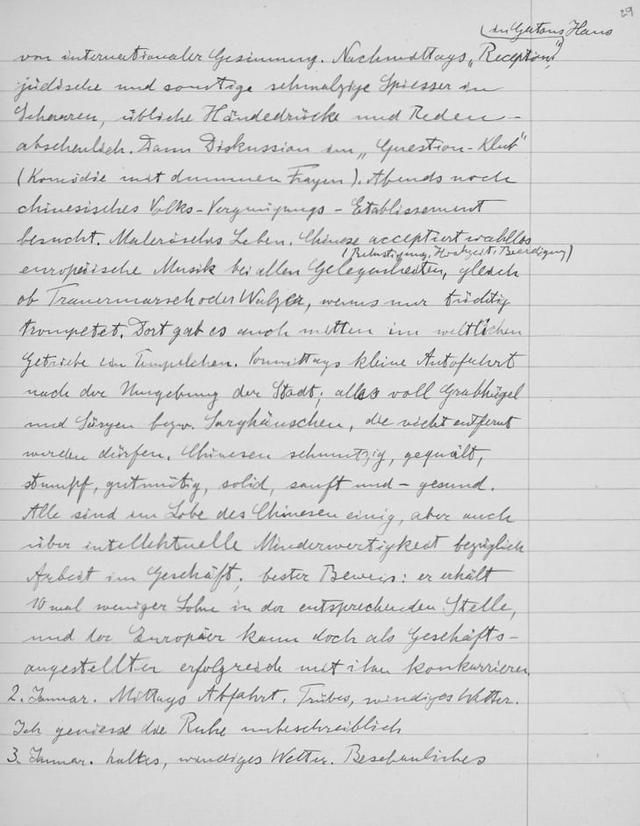 29
in Gatons Haus
von internationaler Gesinnung. Nachmittags „Reception“,
jüdische und sonstige schmalzige Spiesser in
Scharen, übliche Händedrücke und Reden –
abscheulich. Dann Diskussion im „Question-Klub“
(Komödie mit dummen Fragen). Abends noch
chinesisches Volks-Vergnügungs-Etablissement
besucht. Malerisches Leben. Chinese acceptiert wahllos
(Belustigung, Hochzeit, Beerdigung)
europäische Musik bei allen Gelegenheiten, gleich
ob Trauermarsch oder Walzer, wenns nur tüchtig
trompetet. Dort gab es auch mitten im weltlichen
Getriebe ein Tempelchen. Vormittags kleine Autofahrt
nach der Umgebung der Stadt; alles voll Grabhügel
und Särgen bezw. Sarghäuschen, die nicht entfernt
werden dürfen. Chinesen schmutzig, gequält,
stumpf, gutmütig, solid, sanft und – gesund.
Alle sind im Lobe des Chinesen einig, aber auch
über intellektuelle Minderwertigkeit bezüglich
Arbeit im Geschäft; bester Beweis: er erhält
10 mal weniger Lohn in der entsprechenden Stelle,
und der Europäer kann doch als Geschäfts-
angestellter erfolgreich mit ihm konkurrieren.
2. Januar. Mittags Abfahrt. Trübes, windiges Wetter.
Ich geniesse die Ruhe unbeschreiblich
3. Januar. kaltes, windiges Wetter. Beschauliches